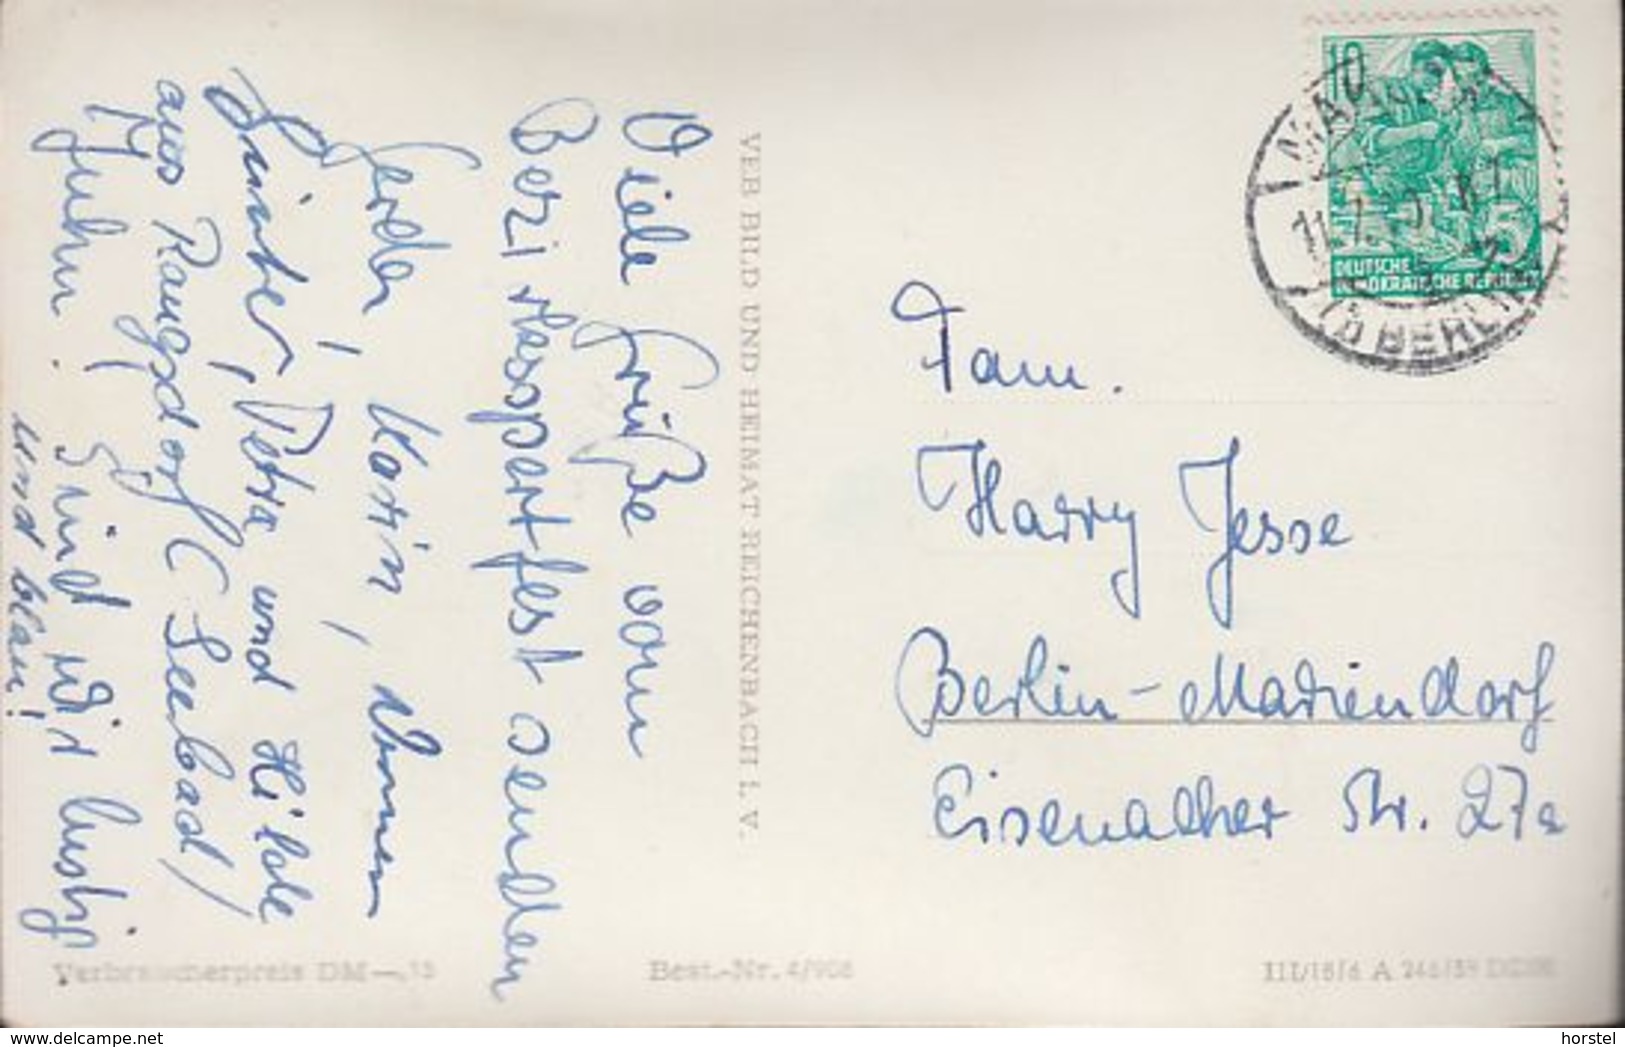 Viele Grüße vom
Bezirkssportfest senden
Gerda, Karin,
Günter, Petra und Hilde
aus Rangsdorf (Seebad)
Juhu. Sind wir lustig
und blau!
VEB BILD UND HEIMAT REICHENBACH I. V.
10
5
DEUTSCHE
DEMOKRATISCHE REPUBLIK
BERLIN
Fam.
Harry Jesse
Berlin-Mariendorf
Eisenacher Str. 27a
Verbraucherpreis DM —,15
Best.-Nr. 4/908
III/18/6 A 246/59 DDR
www.delcampe.net
horstel